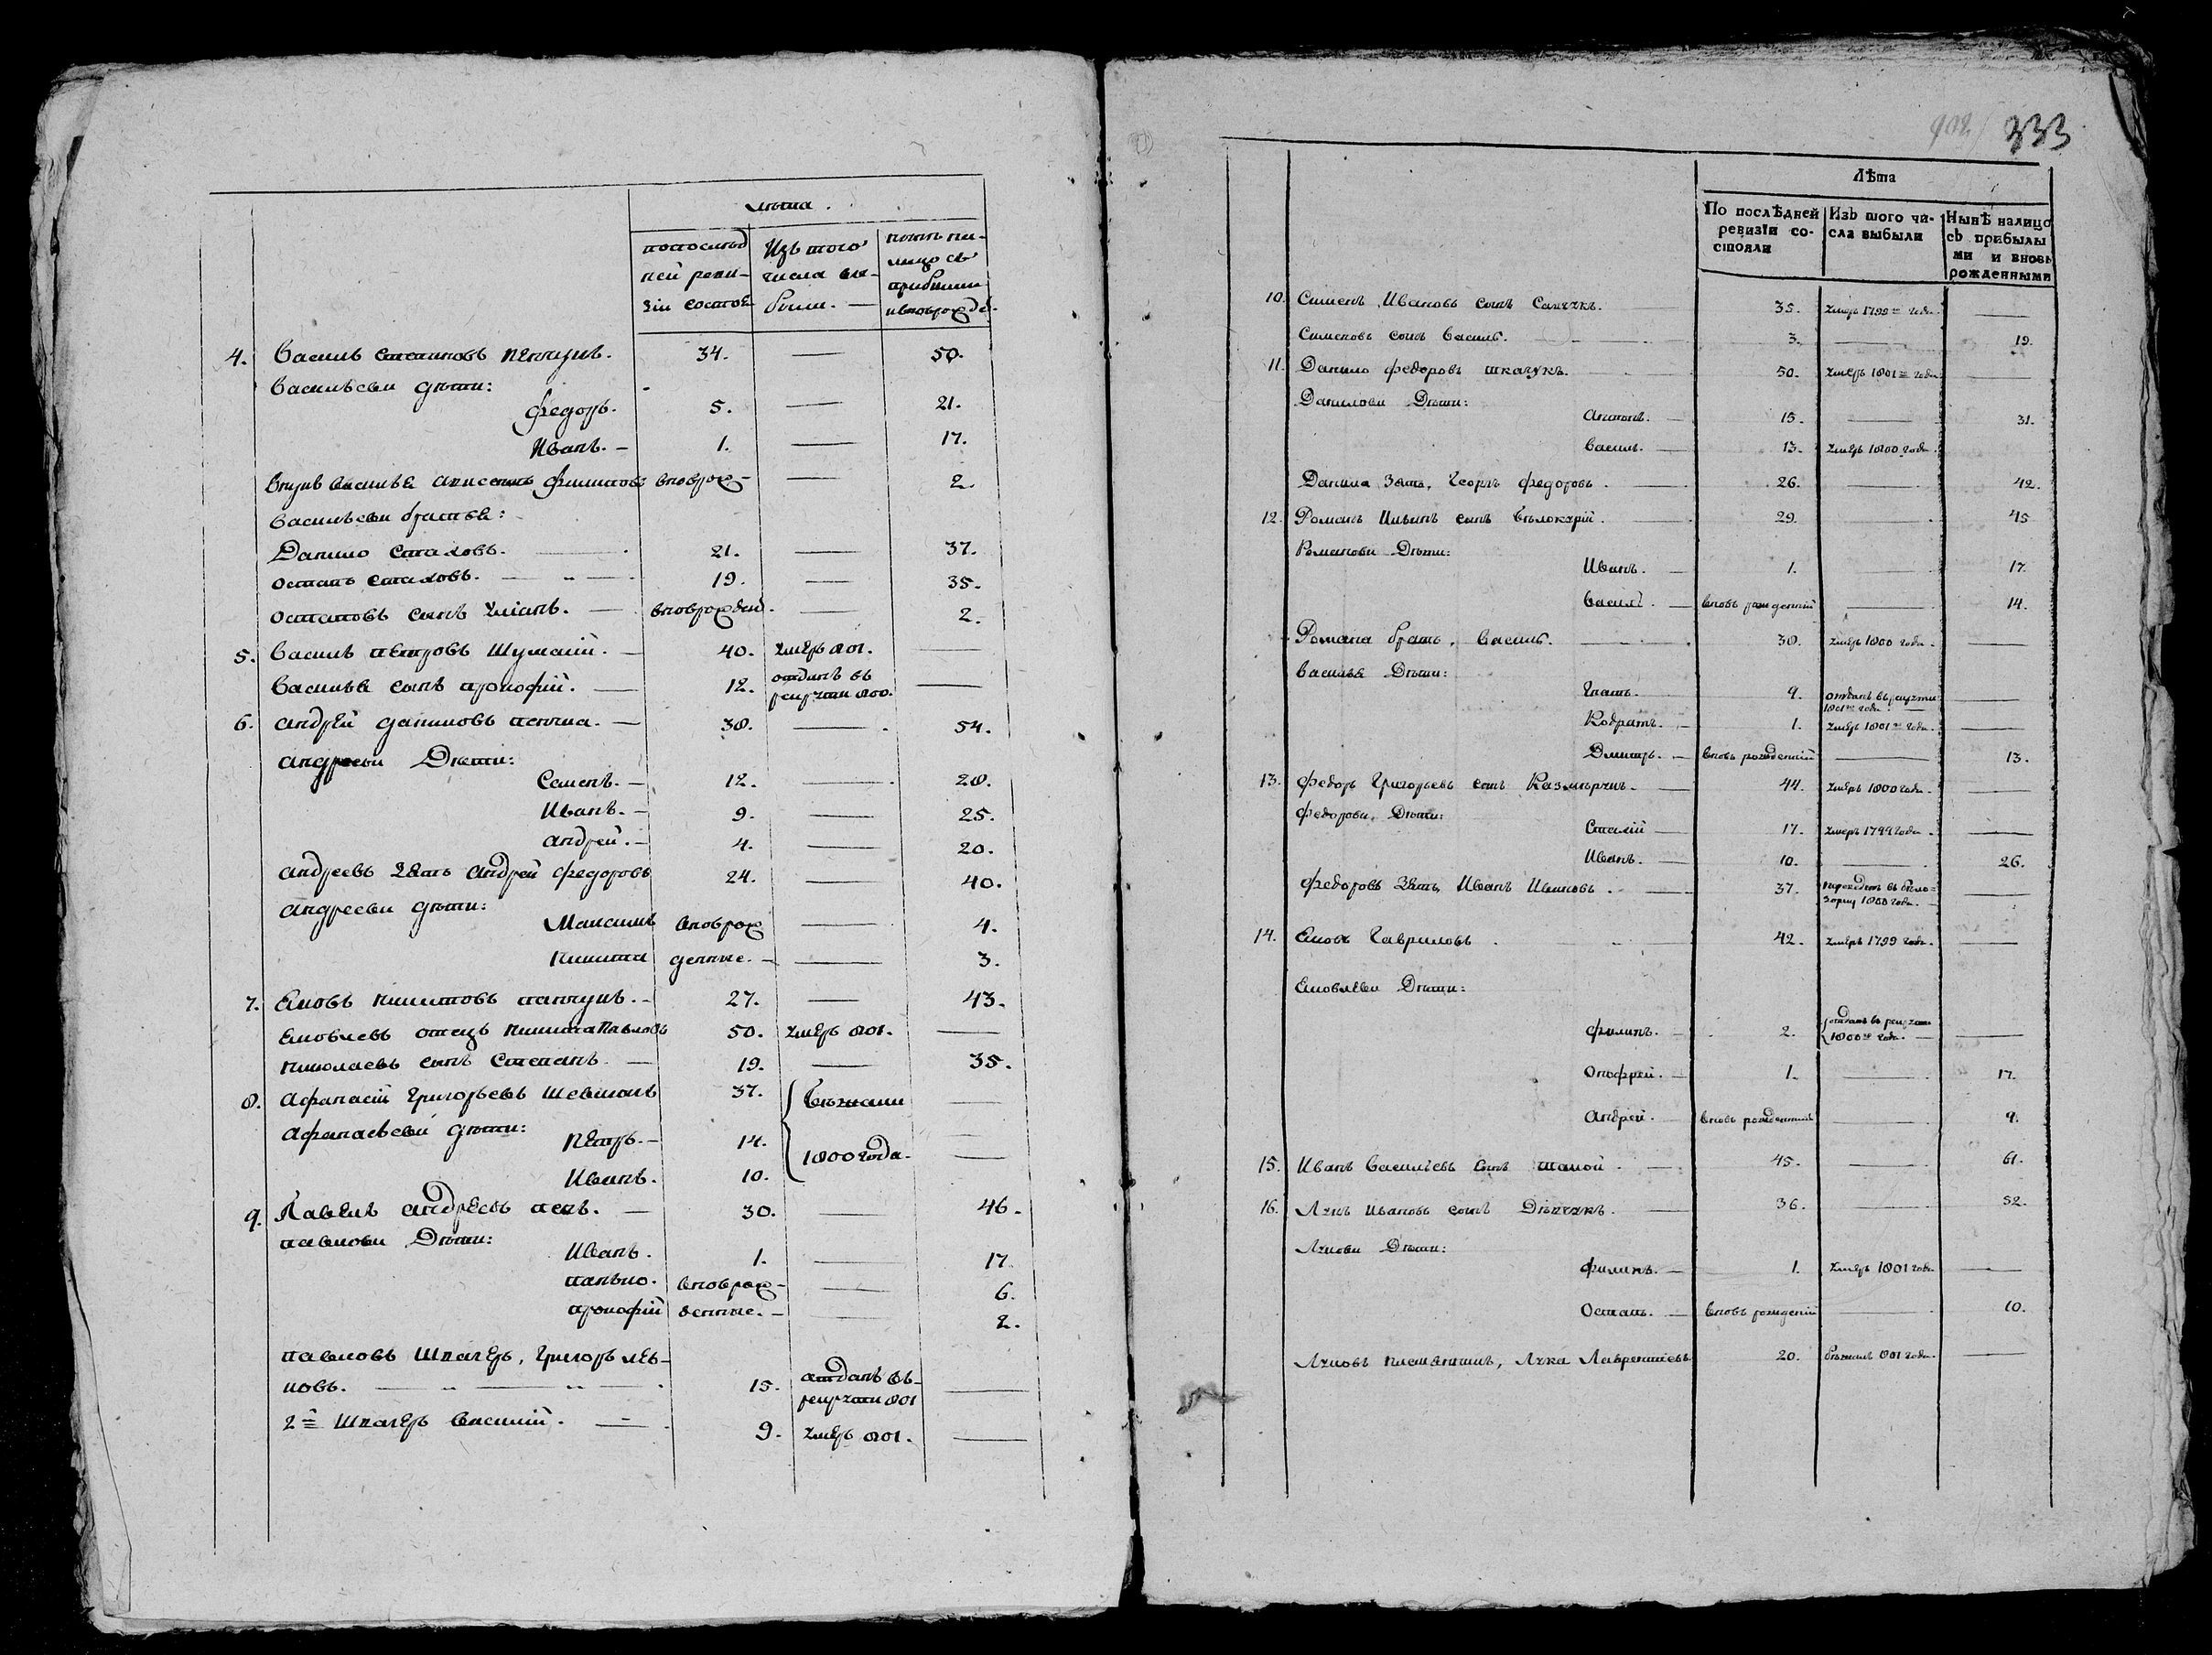 Лѣта.
попослѣд
ней реви-
зіи состоя
Изъ того
числа вы-
были. —
нынѣ на-
лицо съ
прибыли
ивноврожде.
4. Василь Стаховъ 34. — 50.
Васильеви дѣти:
Федоръ. 5. — 21.
Иванъ. — 1. — 17.
Внукъ Василья вноврож- — 2.
Васильеви братья:
Данило Стаховъ. — 21. — 37.
Остапъ Стаховъ. — 19. — 35.
Остаповъ сынъ Уліанъ. — вноврожден. — 2.
5. Василь Петровъ — 40. умеръ 801. —
Василья сынъ Прокофій. — 12. отданъ въ рекруты 800. —
6. Андрей Даниловъ — 38. — 54.
Андрееви Дѣти:
Семенъ. — 12. — 28.
Иванъ. — 9. — 25.
Андрей. — 4. — 20.
Андреевъ Зять Андрей Федоровъ 24. — 40.
Андрееви дѣти:
Максимъ вноврож — 4.
Никита денные. — — 3.
7. Яковъ Никитовъ — 27. — 43.
Яковлевъ отецъ Никита Павловъ 50. умеръ 801. —
Николаевъ сынъ Степанъ. — 19. — 35.
8. Афанасій Григорьевъ 37. Бѣжали —
Афанасьеви дѣти:
Петръ. — 14. 1800 года. —
Иванъ. 10.
9. Павелъ Андреевъ — 30. — 46.
Павлови Дѣти:
Иванъ. 1. — 17.
Панько. вноврож- — 6.
Прокофій денные. — — 2.
Павловъ Швагеръ, Григоръ Лев-
ковъ. — 15. отданъ въ рекруты 801 —
2й Швагеръ Василій. — 9. умеръ 801. —
333
Лѣта
По послѣдней
ревизіи со-
стояли
Изъ того чи-
сла выбыли
Нынѣ налицо
съ прибылы
ми и вновь
рожденными
10. Сименъ Ивановъ сынъ 35. умеръ 1799го года. —
Сименовъ сынъ Василь. — 3. — 19.
11. Данило Федоровъ Ткачукъ. 50. умеръ 1801го года —
Данилови Дѣти:
Антонъ. — 15. — 31.
Василь. — 13. умеръ 1800 года. —
Данила Зять, Георгъ Федоровъ. — 26. — 42.
12. Романъ Ильинъ сынъ — 29. — 45
Романови Дѣти:
Иванъ. — 1. — 17.
Василь. — вновь рожденній — 14.
Романа братъ, Василь. — 30. умеръ 1800 года. —
Василья Дѣти:
Гнатъ. — 9. отданъ въ рекруты 1801го года —
Кодратъ. — 1. умеръ 1801го года. —
Дмитръ. — вновь рожденній — 13.
13. Федоръ Григорьевъ сынъ — 44. умеръ 1800 года. —
Федорови Дѣти:
Стасій — 17. умеръ 1799 года. —
Иванъ. — 10. — 26.
Федоровъ Зять, Иванъ Ивановъ. — 37. 1800 года. —
14. Яковъ Гавриловъ. 42. умеръ 1799 года. —
Яковлеви Дѣти:
Филипъ. — 2. отданъ въ рекруты 1800го года. —
Онофрей. — 1. — 17.
Андрей. — вновь рожденный — 9.
15. Иванъ Васильевъ сынъ — 45. — 61.
16. Лукъ Ивановъ сынъ — 36. — 52.
Лукови Дѣти:
Филипъ. — 1. умеръ 1801 года —
Остапъ. — вновь рожденій — 10.
Луковъ племянникъ, Лука Лаврентіевъ 20. бѣжалъ 801 года. —